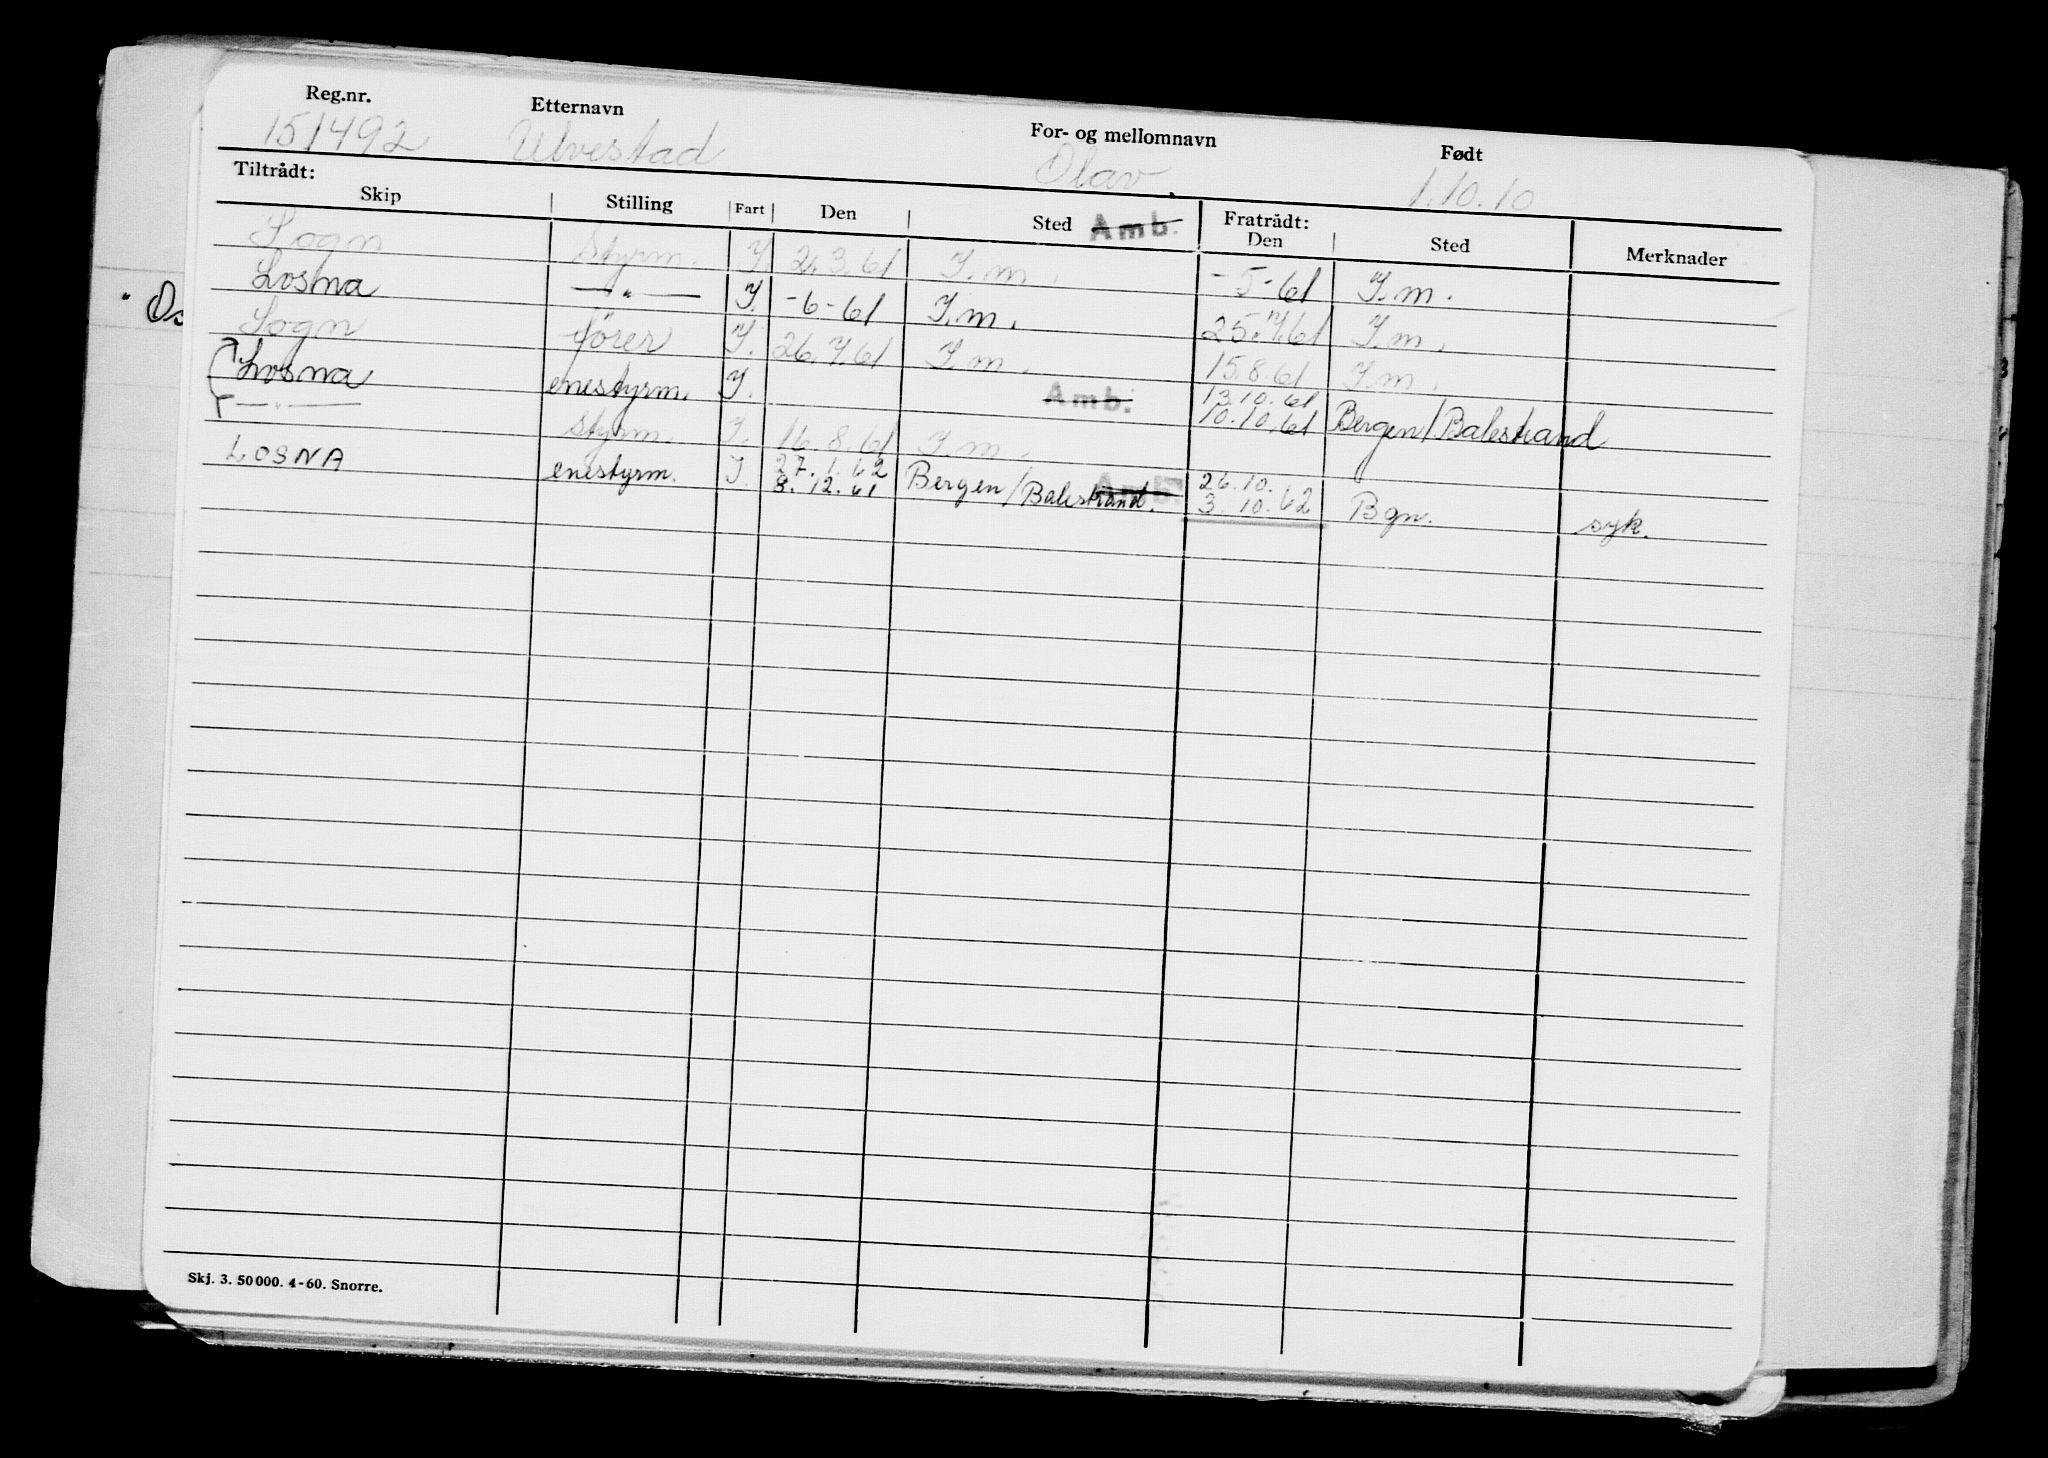 Reg.nr. Etternavn For- og mellomnavn Født
151492 Ulvestad Olav. 1.10.10
Tiltrådt: Fratrådt:
Skip Stilling Fart Den Sted Amb. Den Sted Merknader
Sogn styrm. I. 2.3.61 I.m. -5-61 I.m.
Losna —"— I. -6-61 I.m. 25.7.61 I.m.
Sogn fører I. 26.7.61 I.m. 15.8.61 I.m.
Losna enestyrm. I. Amb. 13.10.61 10.10.61 Bergen/Balestrand
—"— styrm. I. 16.8.61 I.m.
LOSNA enestyrm. I. 27.1.62 8.12.61 Bergen/Balestrand. Amb. 26.10. 3.10.62 Bgn. syk.
Skj. 3. 50 000. 4-60. Snorre.